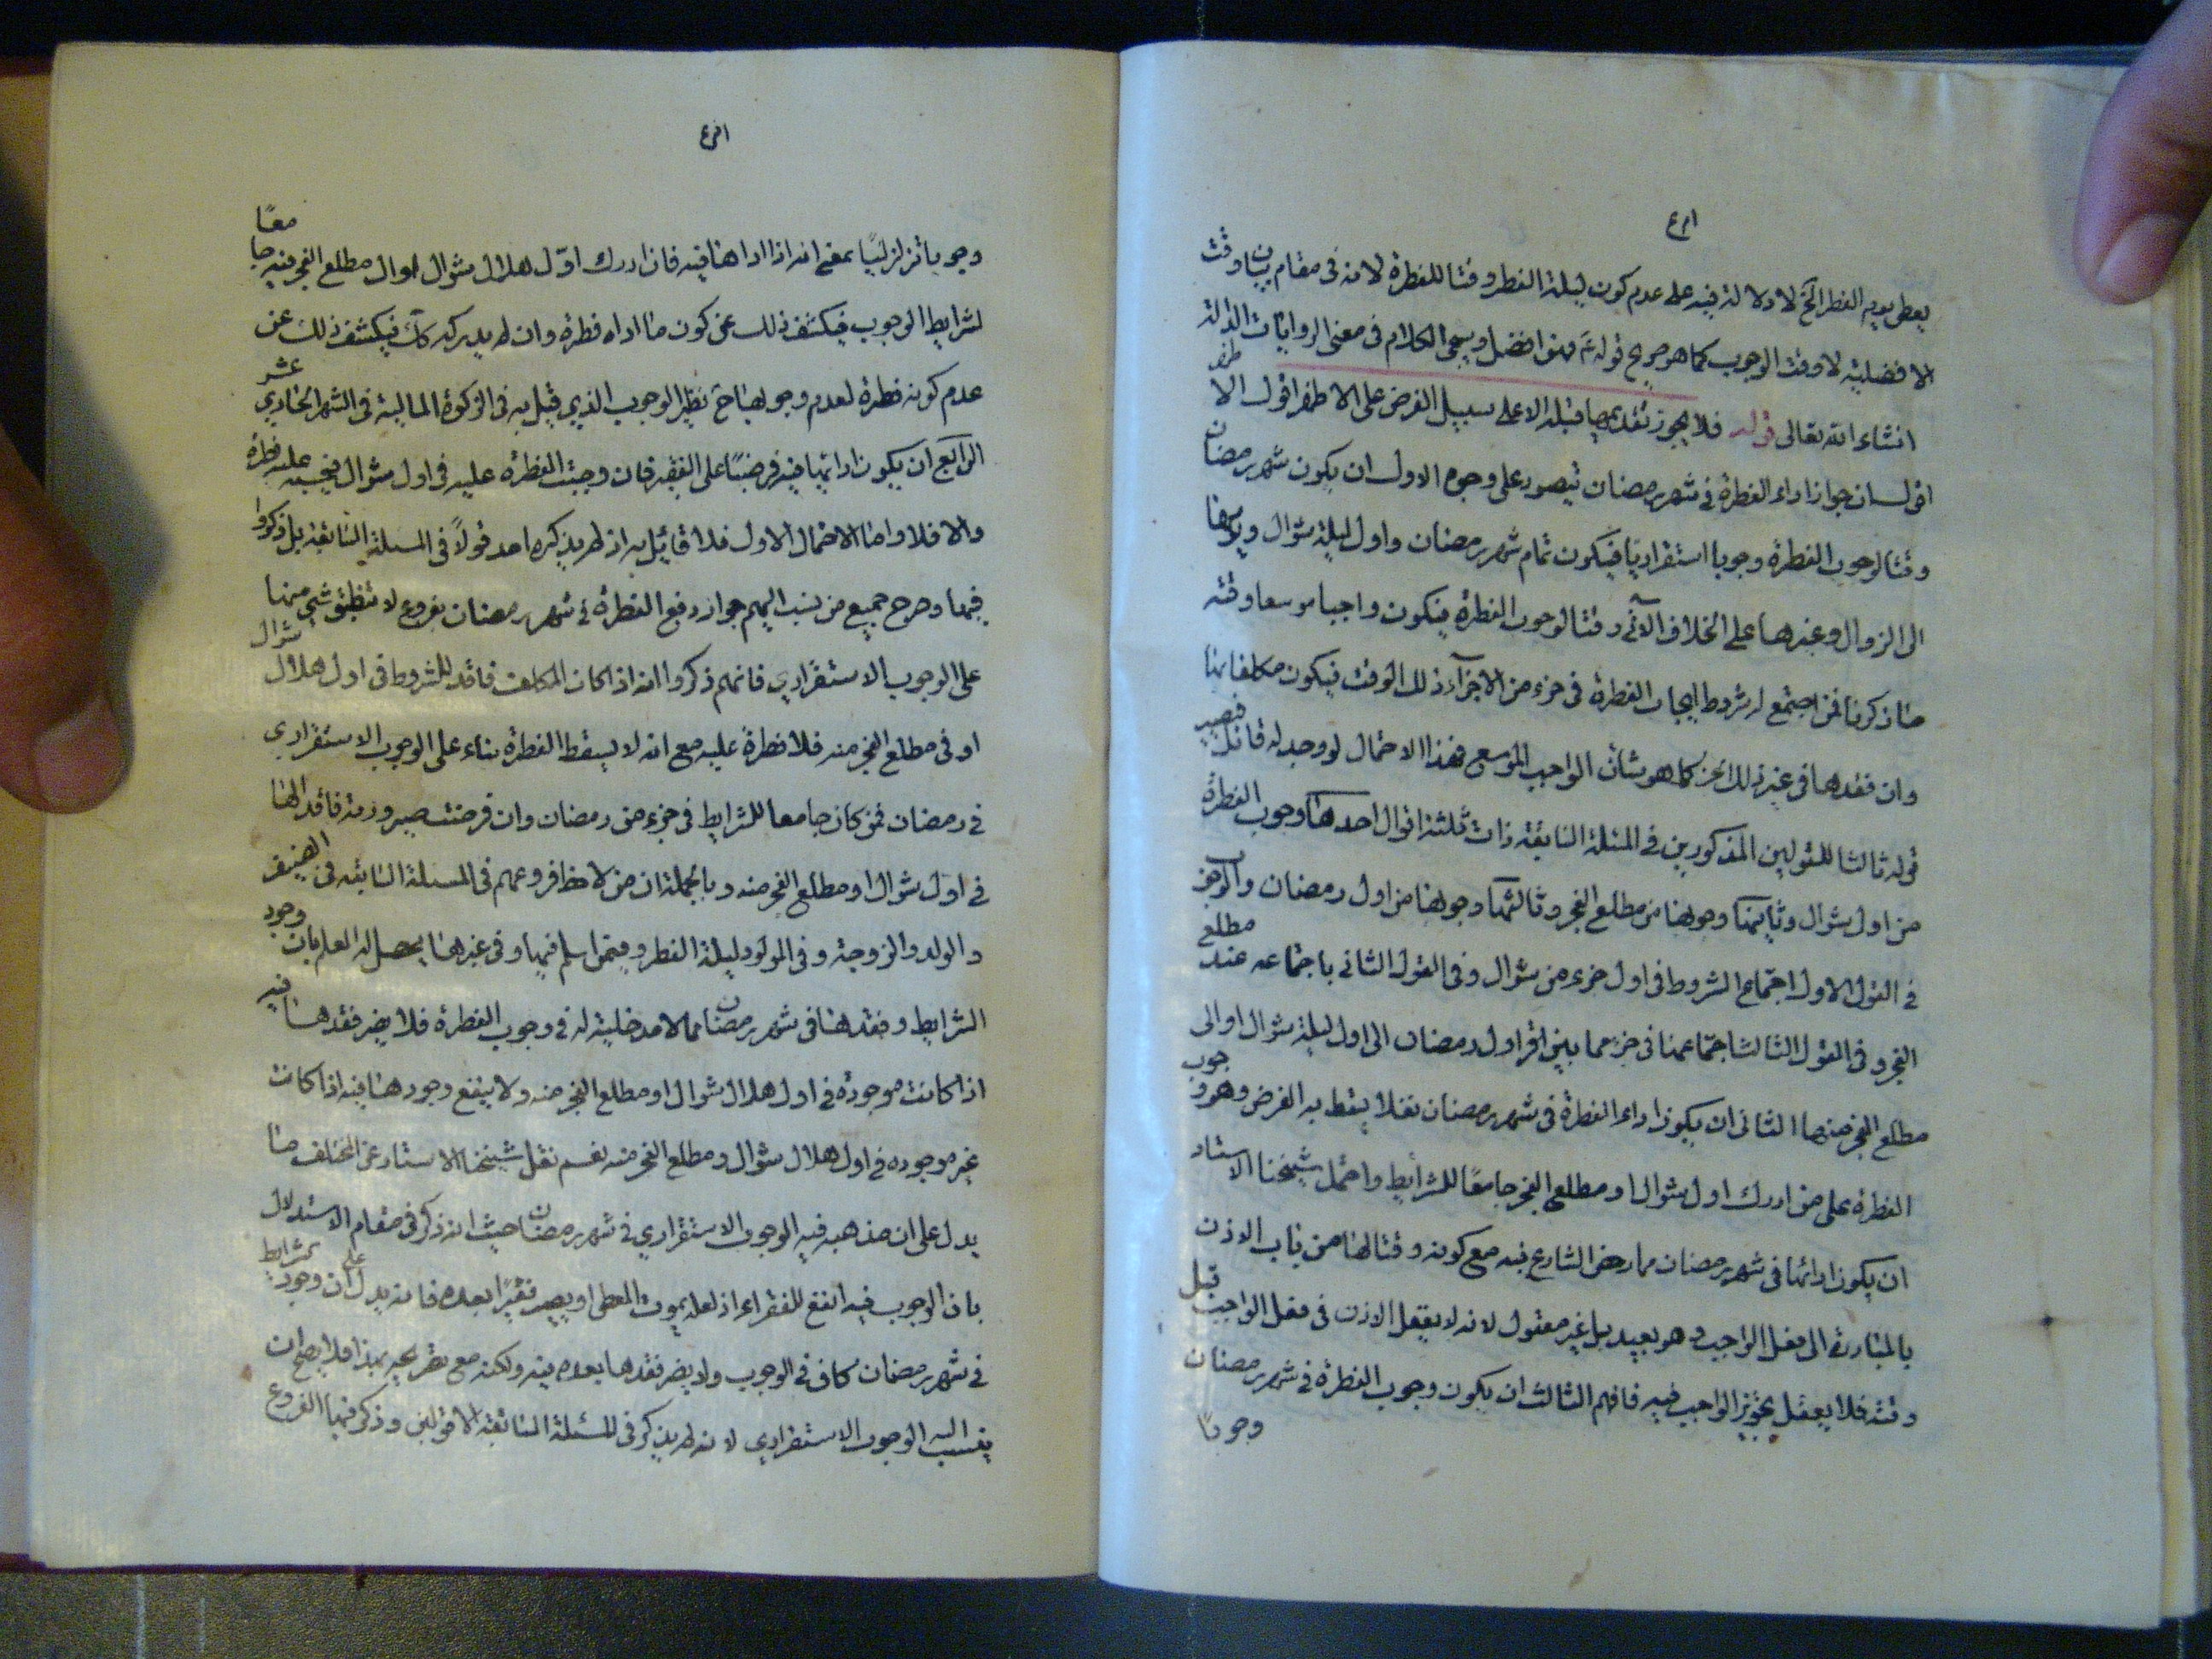 يعطى يوم الفطر الخ لا دلالة فيه على عدم كون ليلة الفطر وقتا للفطرة لانه في مقام بيان وقت
الافضلية لا وقت الوجوب كما هو صريح قوله ع فهو افضل وسيجئ الكلام في معنى الروايات الدالة
انشاء الله تعالى قوله فلا يجوز تقديمها قبله الا على سبيل القرض على الاظهر اقول الا
اقول ان جواز اداء الفطرة في شهر رمضان يتصور على وجوه الاول ان يكون شهر رمضان
وقتا لوجوب الفطرة وجوبا استقراريا فيكون تمام شهر رمضان واول ليلة شوال ويومها
الى الزوال وغيرها على الخلاف الآتي وقتا لوجوب الفطرة فيكون واجبا موسعا وقته
ما ذكرنا فمن اجتمع له شروط ايجاب الفطرة في جزء من الاجزاء ذلك الوقت فيكون مكلفا بها
وان فقدها في غير ذلك الجزء كما هو شان الواجب الموسع فهذا الاحتمال لو وجد له قائل فيصير
قوله ثالثا للقولين المذكورين في المسئلة السابقة ذات ثلثة اقوال احدها وجوب الفطرة
من اول شوال وثانيها وجوبها من مطلع الفجر وثالثها وجوبها من اول رمضان
في القول الاول اجتماع الشروط في اول جزء من شوال وفي القول الثاني باجتماعه عند مطلع
الفجر وفي القول الثالث اجتماعها في جزء مما بين اول رمضان الى اول ليلة شوال او الى
مطلع الفجر منها الثاني ان يكون اداء الفطرة في شهر رمضان نفلا يسقط به الفرض وهو وجوب
الفطرة على من ادرك اول شوال او مطلع الفجر جامعا للشرايط واحتمل شيخنا الاستاد
ان يكون ادائها في شهر رمضان مما رخص الشارع فيه مع كونه وقتا لها من باب الاذن
بالمبادرة الى فعل الواجب وهو بعيد بل غير معقول لانه لا يعقل الاذن في فعل الواجب قبل
وقته فلا يعقل تجويز الواجب فيه فافهم الثالث ان يكون وجوب الفطرة في شهر رمضان
وجوبا
وجوبا تزلزليا بمعنى انه اذا اداها فيه فان ادرك اول هلال شوال او مطلع الفجر منه جامعا
لشرايط الوجوب فيكشف ذلك عن كون ما اداه فطرة وان لم يدركه كك فيكشف ذلك عن
عدم كونه فطرة لعدم وجوبها ح نظير الوجوب الذي قيل به في الزكوة المالية في الشهر الحادي عشر
الرابع ان يكون ادائها فيه قرضا على الفقير فان وجبت الفطرة عليه في اول شوال فيحسبه عليه فطرة
والا فلا واما الاحتمال الاول فلا قائل به اذ لم يذكره احد قولا في المسئلة السابقة بل ذكروا
فيها وصرح جميع من نسب اليهم جواز دفع الفطرة في شهر رمضان بفروع لا تنطبق شئ منها
على الوجوب الاستقراري فانهم ذكروا انه اذا كان المكلف فاقد للشروط في اول هلال شوال
او في مطلع الفجر منه فلا فطرة عليه مع انه لا يسقط الفطرة بناء على الوجوب الاستقراري
في رمضان فمن كان جامعا للشرايط في جزء من رمضان وان فرضت صيرورته فاقدا لها
في اول شوال او مطلع الفجر منه وبالجملة ان من لاحظ فروعهم في المسئلة السابقة في
والولد والزوجة وفي المولود ليلة الفطر وفيمن اسلم فيها وفي غيرها يحصل له العلم بان وجود
الشرايط وفقدها في شهر رمضان مما لا مدخلية له في وجوب الفطرة فلا يضر فقدها فيه
اذا كانت موجودة في اول هلال شوال او مطلع الفجر منه ولا ينفع وجودها فيه اذا كانت
غير موجوده في اول هلال شوال ومطلع الفجر منه نعم نقل شيخنا الاستاد عن المختلف ما
يدل على ان مذهبه فيه الوجوب الاستقراري في شهر رمضان حيث انه ذكر في مقام الاستدلال
بان الوجوب فيه انفع للفقراء اذ لعله يموت المعطى او يصير فقيرا بعده فانه يدل على ان وجود الشرايط
في شهر رمضان كاف في الوجوب ولا يضر فقدها بعده فيه ولكنه مع تصريحه بهذا فلا يصح ان
ينسب اليه الوجوب الاستقراري لانه لم يذكر في المسئلة السابقة الا قولين وذكر فيها الفروع